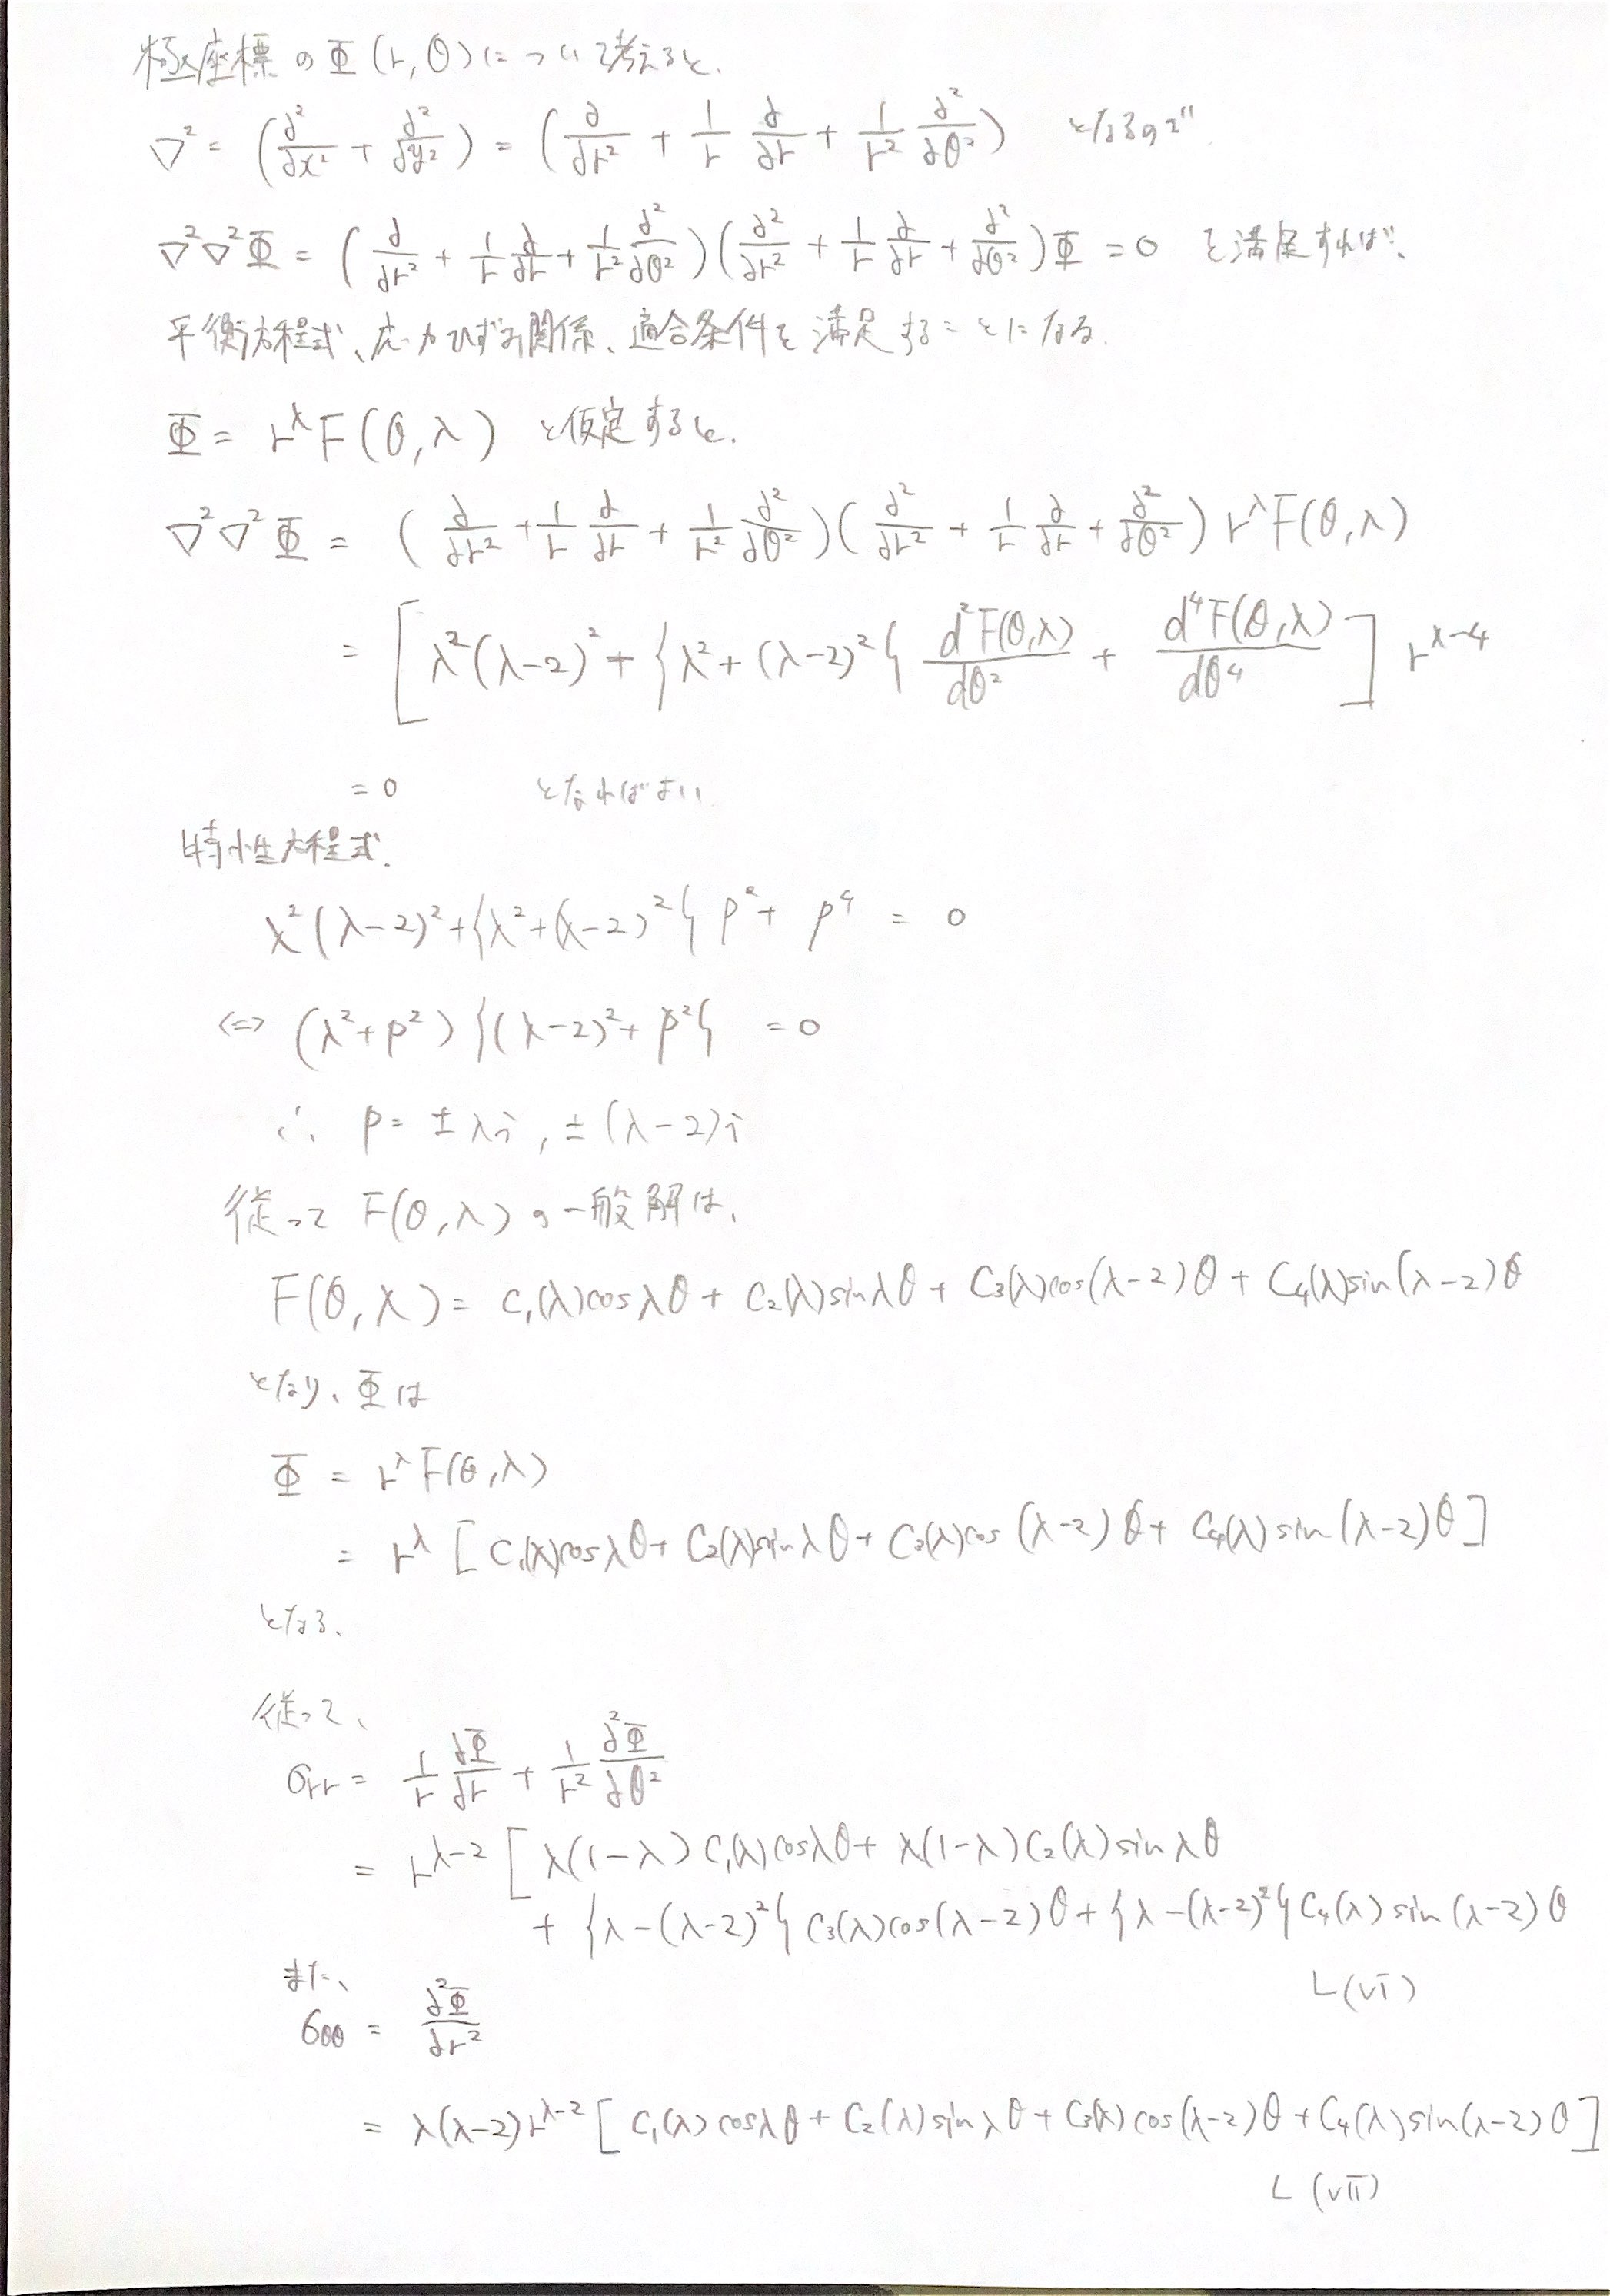 極座標のΦ(r,θ)について考えると、
∇² = (∂²/∂x² + ∂²/∂y²) = (∂/∂r² + 1/r ∂/∂r + 1/r² ∂²/∂θ²) となるので
∇²∇²Φ = (∂/∂r² + 1/r ∂/∂r + 1/r² ∂²/∂θ²)(∂²/∂r² + 1/r ∂/∂r + ∂²/∂θ²)Φ = 0 を満足すれば、
平衡方程式、応力ひずみ関係、適合条件を満足することになる.
Φ = r^λ F(θ,λ) と仮定すると、
∇²∇²Φ = (∂/∂r² + 1/r ∂/∂r + 1/r² ∂²/∂θ²)(∂²/∂r² + 1/r ∂/∂r + ∂²/∂θ²) r^λ F(θ,λ)
= [λ²(λ-2)² + {λ² + (λ-2)²} d²F(θ,λ)/dθ² + d⁴F(θ,λ)/dθ⁴] r^(λ-4)
= 0 となればよい
特性方程式.
λ²(λ-2)² + {λ² + (λ-2)²} p² + p⁴ = 0
⇔ (λ² + p²){(λ-2)² + p²} = 0
∴ p = ±λi, ±(λ-2)i
従って F(θ,λ)の一般解は、
F(θ,λ) = C₁(λ)cosλθ + C₂(λ)sinλθ + C₃(λ)cos(λ-2)θ + C₄(λ)sin(λ-2)θ
となり、Φは
Φ = r^λ F(θ,λ)
= r^λ [C₁(λ)cosλθ + C₂(λ)sinλθ + C₃(λ)cos(λ-2)θ + C₄(λ)sin(λ-2)θ]
となる、
従って、
σrr = 1/r ∂Φ/∂r + 1/r² ∂²Φ/∂θ²
= r^(λ-2) [λ(1-λ)C₁(λ)cosλθ + λ(1-λ)C₂(λ)sinλθ
+ {λ-(λ-2)²}C₃(λ)cos(λ-2)θ + {λ-(λ-2)²}C₄(λ)sin(λ-2)θ
(vi)
また、
σθθ = ∂²Φ/∂r²
= λ(λ-2)r^(λ-2) [C₁(λ)cosλθ + C₂(λ)sinλθ + C₃(λ)cos(λ-2)θ + C₄(λ)sin(λ-2)θ]
(vii)